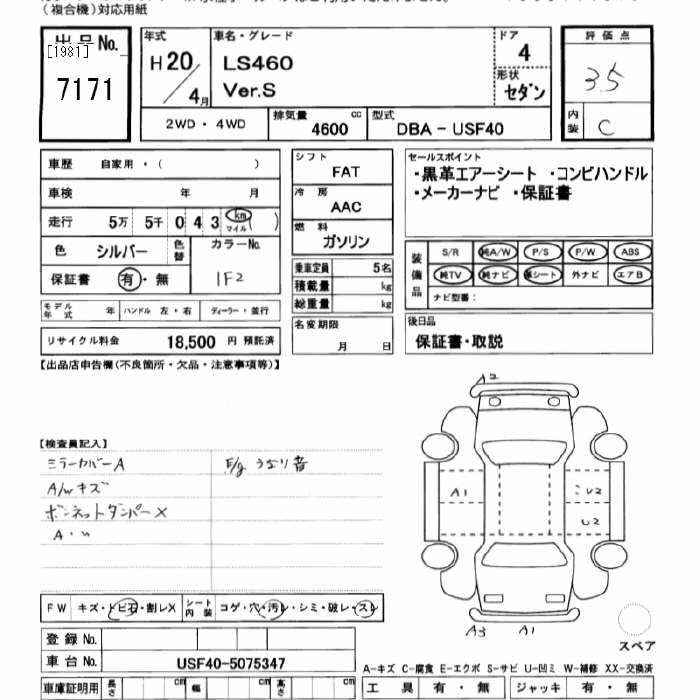 （複合機）対応用紙
出品No.
[1981]
7171
年式
H20/4月
車名・グレード
LS460
Ver.S
ドア
4
形状
セダン
評価点
3.5
内装
C
2WD・4WD
排気量
4600 cc
型式
DBA - USF40
車歴 自家用・( )
車検 年 月
走行 5万 5千 0 4 3 km マイル ( )
色 シルバー 色替
カラーNo.
1F2
保証書 有・無
モデル年式 年 ハンドル 左・右 ディーラー・並行
リサイクル料金 18,500 円 預託済
シフト
FAT
冷房
AAC
燃料
ガソリン
乗車定員 5名
積載量 kg
総重量 kg
名変期限
月 日
セールスポイント
・黒革エアーシート ・コンビハンドル
・メーカーナビ ・保証書
装備品
S/R 純A/W P/S P/W ABS
純TV 純ナビ 革シート 外ナビ エアB
ナビ型番：
後日品
保証書・取説
【出品店申告欄(不良箇所・欠品・注意事項等)】
【検査員記入】
ミラーカバーA
E/g うなり音
A/W キズ
ボンネットダンパーX
A・U
A2
A1
U2
U2
A3
A1
スペア
FW キズ・トビ石・割レX
シート内装 コゲ・穴・汚レ・シミ・破レ・スレ
登録No.
車台No. USF40-5075347
車庫証明用 長さ cm 幅 cm 高さ cm
A-キズ C-腐食 E-エクボ S-サビ U-凹ミ W-補修 XX-交換済
工具 有・無 ジャッキ 有・無